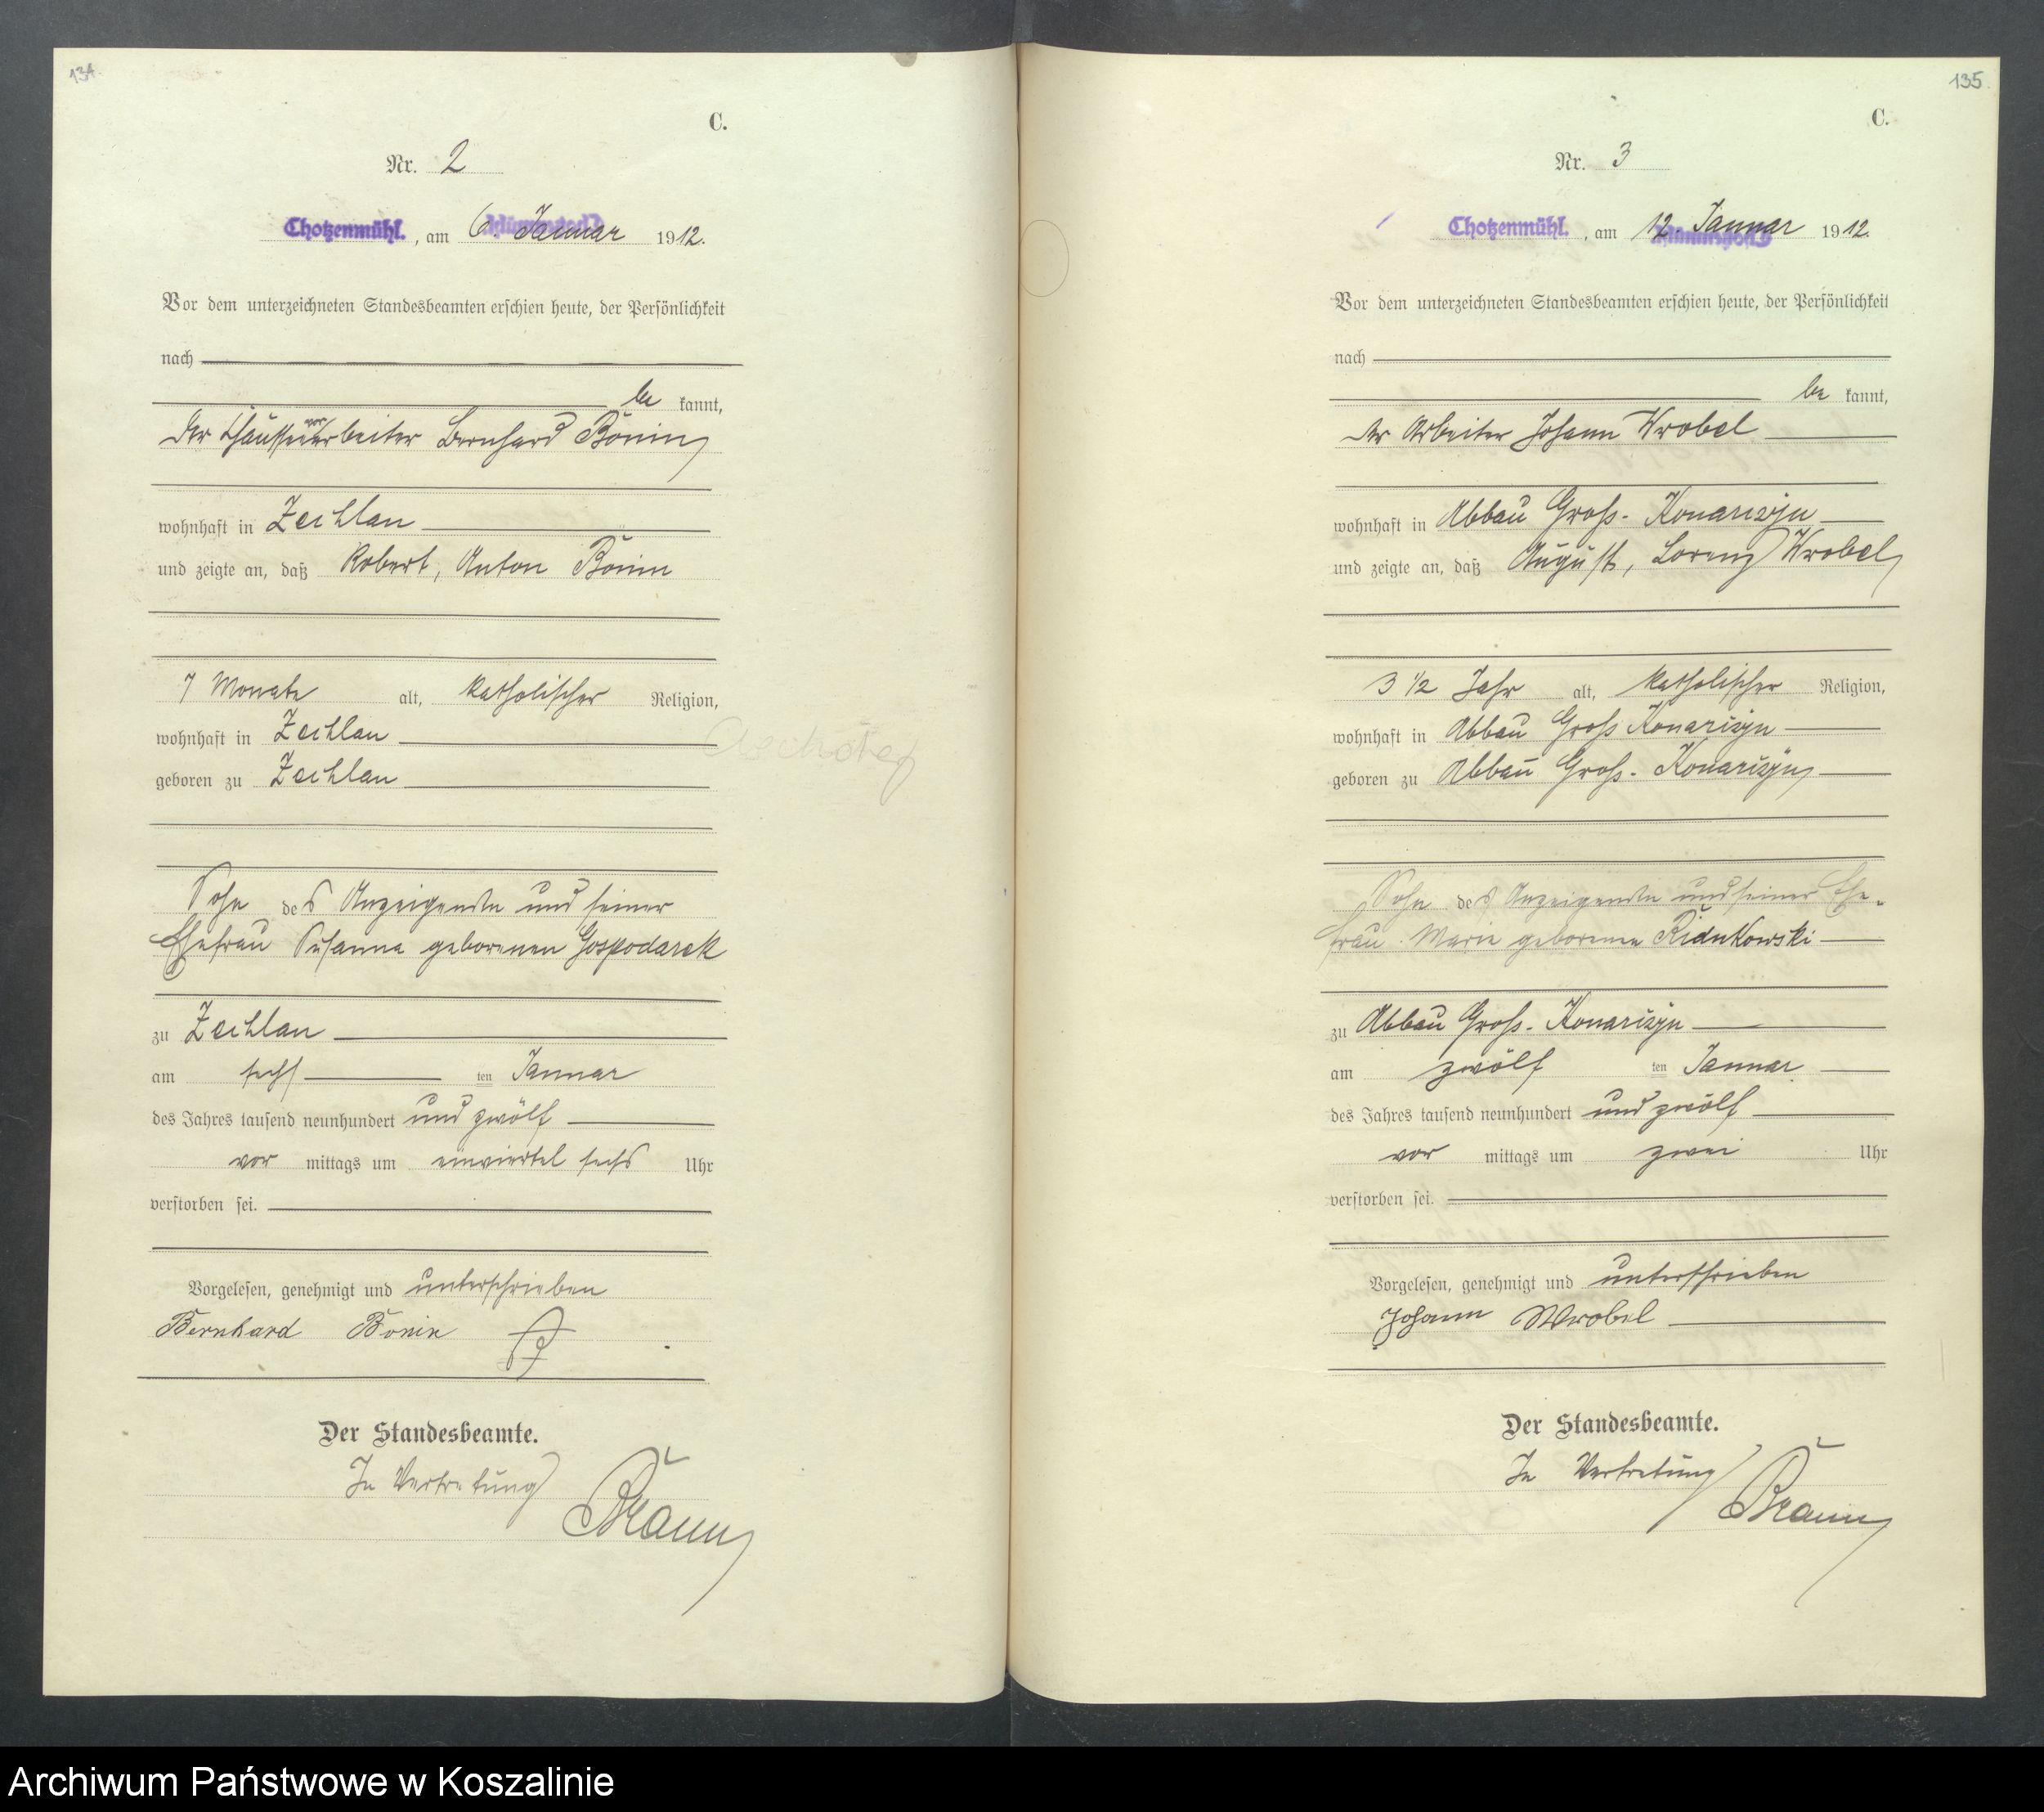 134.
C.
Nr. 2
Chotzenmühl., am 6. Januar 1912.
Vor dem unterzeichneten Standesbeamten erschien heute, der Persönlichkeit
nach
be kannt,
der Bernhard Bonin
wohnhaft in Zechlau
und zeigte an, daß Robert, Anton Bonin
7 Monate alt, katholischer Religion,
wohnhaft in Zechlau
geboren zu Zechlau
Sohn des Anzeigenden und seiner
Ehefrau Susanna geborenen Gospodarek
zu Zechlau
am sechs ten Januar
des Jahres tausend neunhundert und zwölf
vor mittags um einviertel sechs Uhr
verstorben sei.
Vorgelesen, genehmigt und unterschrieben
Bernhard Bonin
Der Standesbeamte.
In Vertretung
Braun
135.
C.
Nr. 3
Chotzenmühl., am 12. Januar 1912.
Vor dem unterzeichneten Standesbeamten erschien heute, der Persönlichkeit
nach
be kannt,
der Arbeiter Johann Wrobel
wohnhaft in Abbau Groß-Konarizyn
und zeigte an, daß August, Lorenz Wrobel
3 1/2 Jahr alt, katholischer Religion,
wohnhaft in Abbau Groß Konarizyn
geboren zu Abbau Groß-Konarizyn
Sohn des Anzeigenden und seiner Ehe-
frau Marie geborenen
zu Abbau Groß-Konarizyn
am zwölf ten Januar
des Jahres tausend neunhundert und zwölf
vor mittags um zwei Uhr
verstorben sei.
Vorgelesen, genehmigt und unterschrieben
Johann Wrobel
Der Standesbeamte.
In Vertretung
Braun
Archiwum Państwowe w Koszalinie